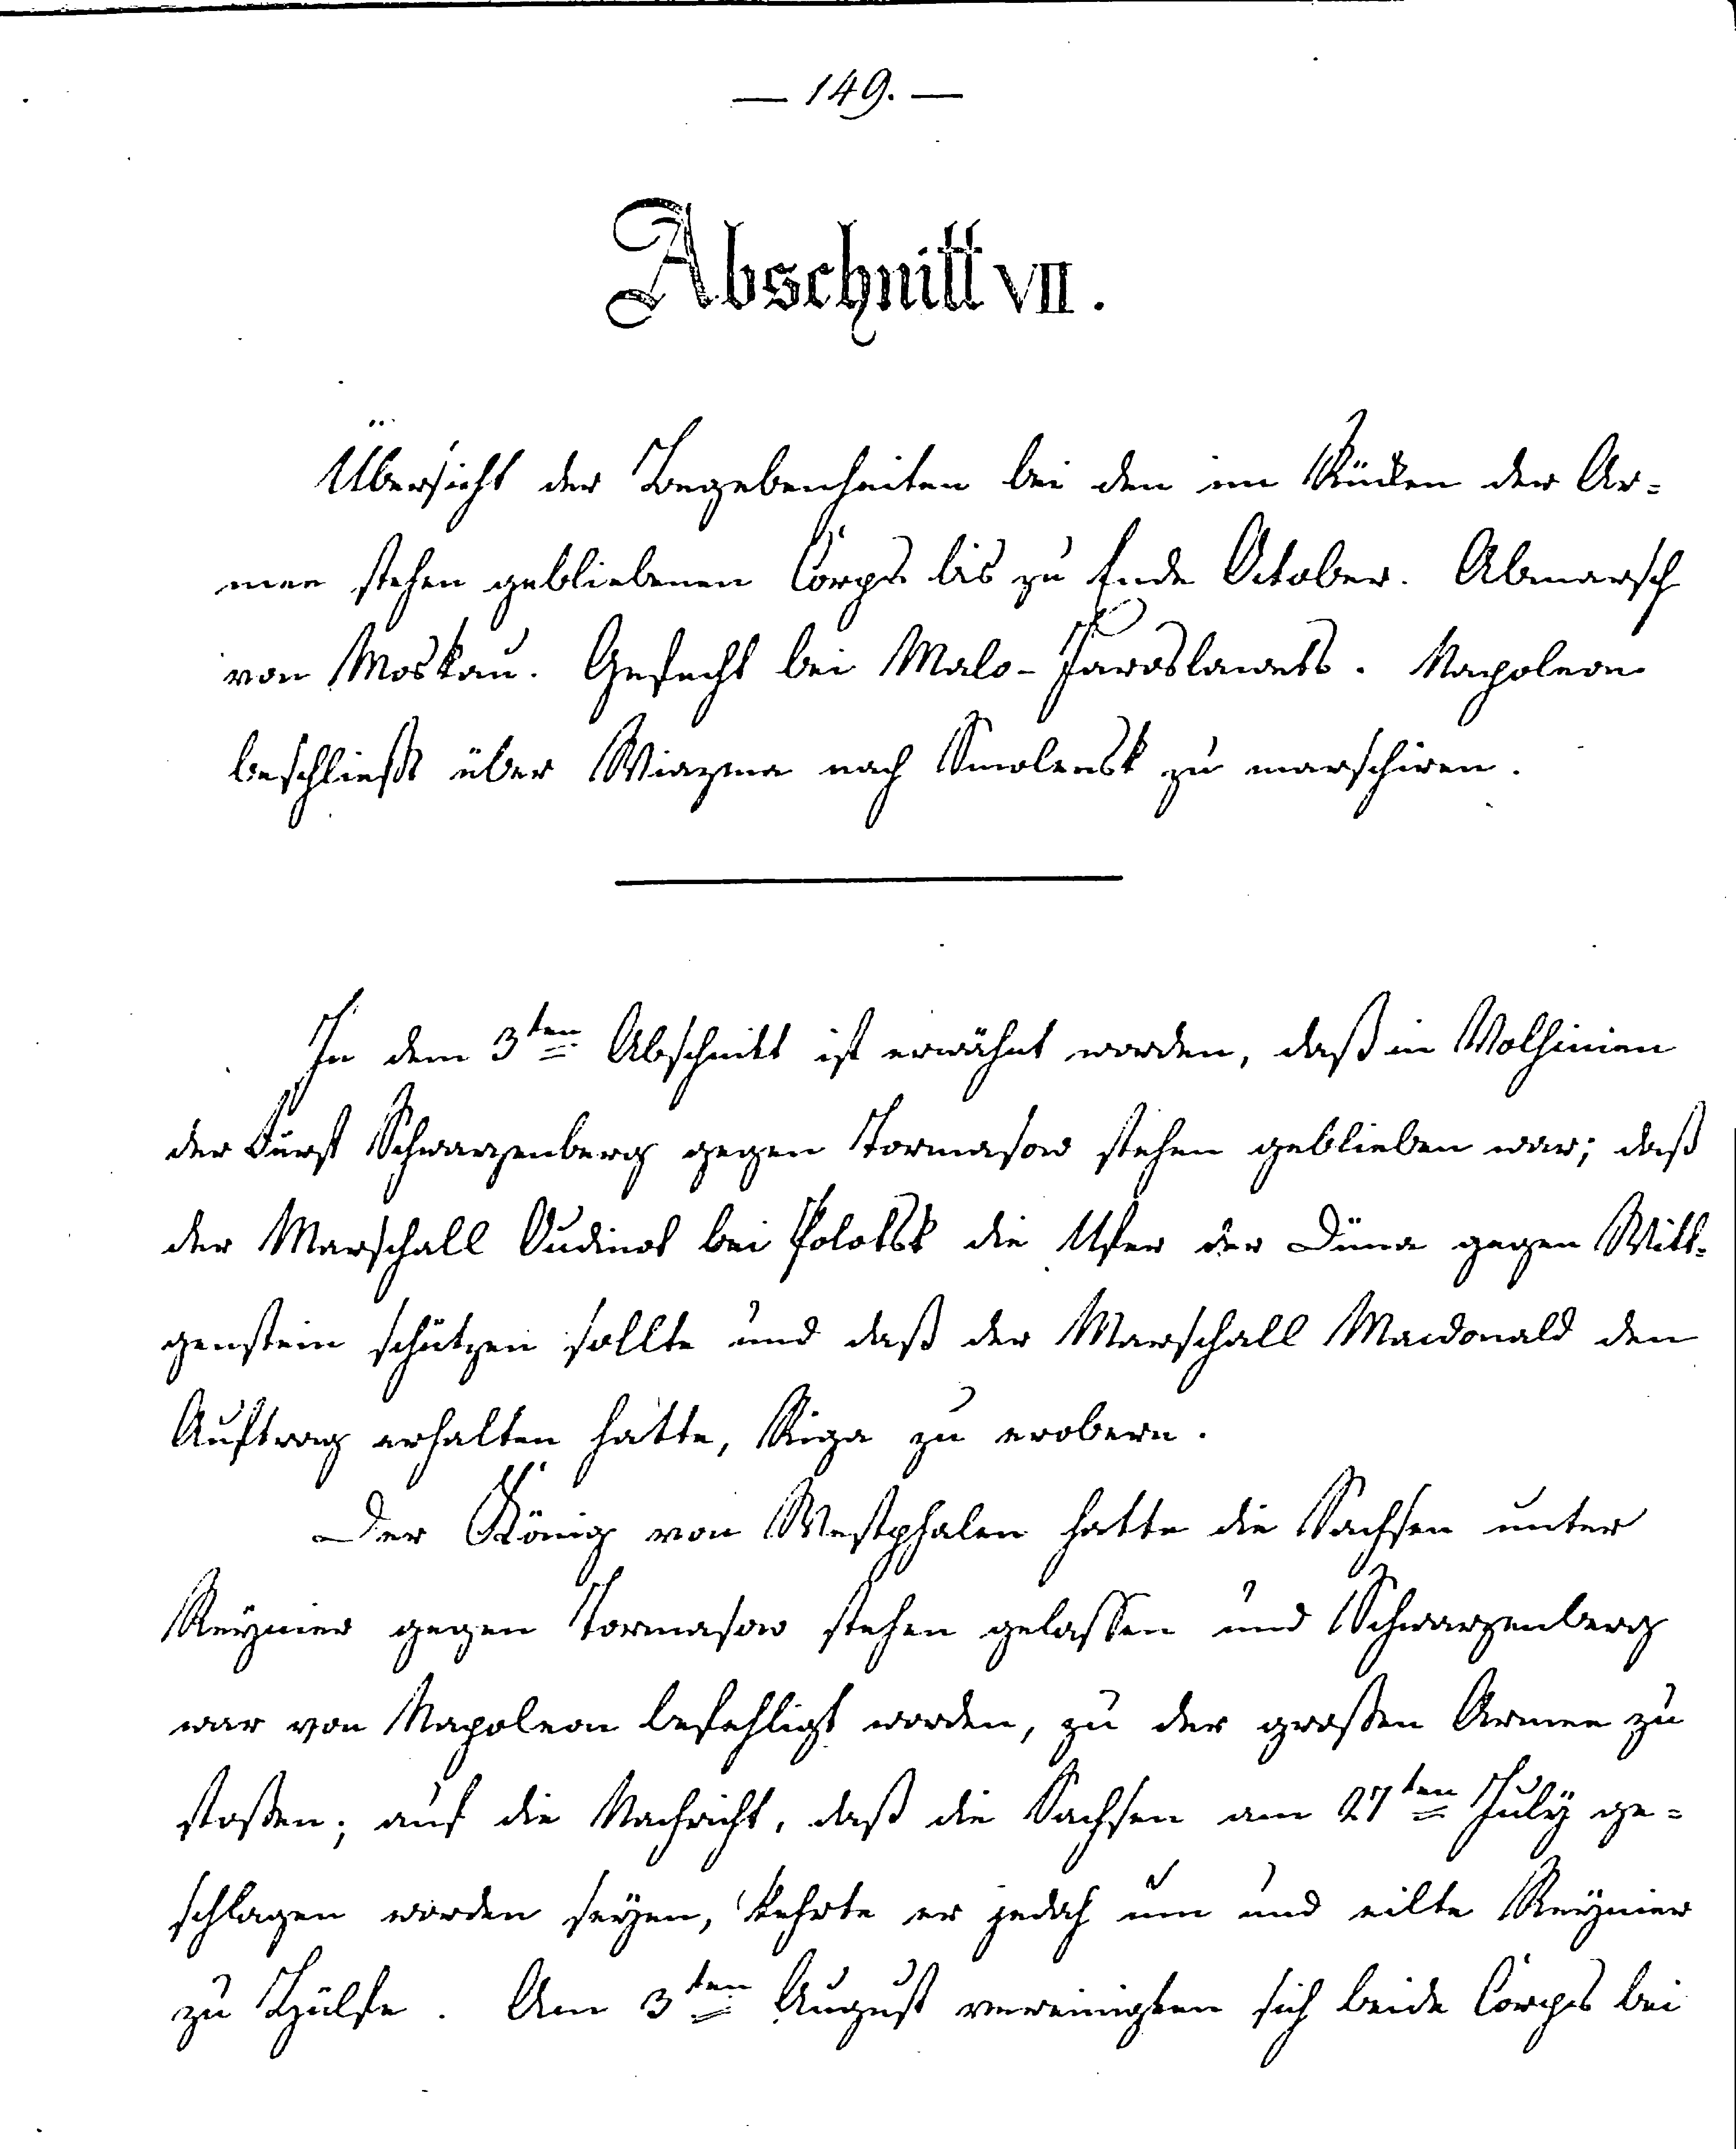 — 149. —
Abschnitt VII.
Übersicht der Begebenheiten bei den im Rücken der Ar=
mee stehen gebliebenen Corps bis zu Ende October. Abmarsch
von Moskau. Gefecht bei Malo-Jaroslawets. Napoleon
beschließt über Wiazma nach Smolensk zu marschiren.
In dem 3ten Abschnitt ist erwähnt worden, daß in Volhinien
der Fürst Schwarzenberg gegen Tormasow stehen geblieben war; daß
der Marschall Oudinot bei Polotsk die Ufer der Düna gegen Witt=
genstein schützen sollte und daß der Marschall Macdonald den
Auftrag erhalten hatte, Riga zu erobern.
Der König von Westphalen hatte die Sachsen unter
Reynier gegen Tormasow stehen gelassen und Schwarzenberg
war von Napoleon befehligt worden, zu der großen Armee zu
stoßen; auf die Nachricht, daß die Sachsen am 27ten July ge=
schlagen worden seyen, kehrte er jedoch um und eilte Reynier
zu Hülfe. Am 3ten August vereinigten sich beide Corps bei